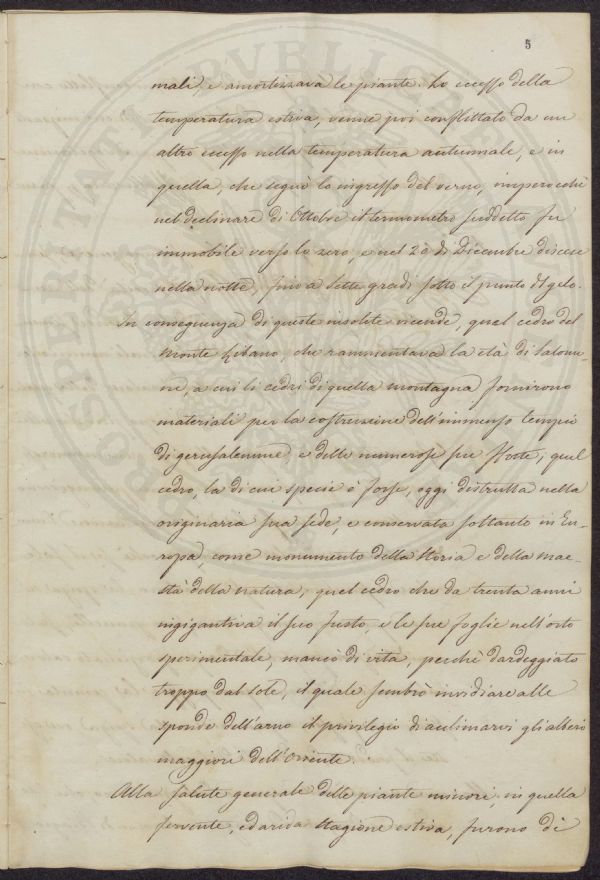 5
mali e amortizzava le piante. Lo eccesso della
temperatura estiva, venne poi conflittato da un
altro eccesso nella temperatura autunnale, e in
quella, che seguì lo ingresso del verno, imperocchè
nel declinare di Ottobre il termometro suddetto fu
immobile verso lo zero, e nel 20 di Dicembre discese
nella notte, fino a sette gradi sotto il punto del gelo.
In conseguenza di queste insolite vicende, quel cedro del
Monte Libano, che rammentava la età di Salomo-
ne, a cui li cedri di quella montagna fornirono
materiali per la costruzione dell'immenso tempio
di gerusalemme e delle numerose sue flotte; quel
cedro, la di cui specie è forse, oggi distrutta nella
originaria sua sede, e conservata soltanto in Eu-
ropa, come monumento della Storia e della mae-
stà della natura; quel cedro che da trenta anni
ingigantiva il suo fusto, e le sue foglie nell'orto
sperimentale, mancò di vita, perchè dardeggiato
troppo dal sole, il quale sembrò invidiare alle
sponde dell'arno il privilegio di acclimarvi gli alberi
maggiori dell'Oriente.
Alla salute generale delle piante minori, in quella
fervente, ed arida stagione estiva, furono di
PROSPERITATI PVBLICAE